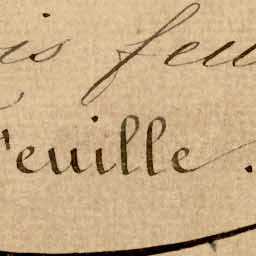 is feu
Feuille.